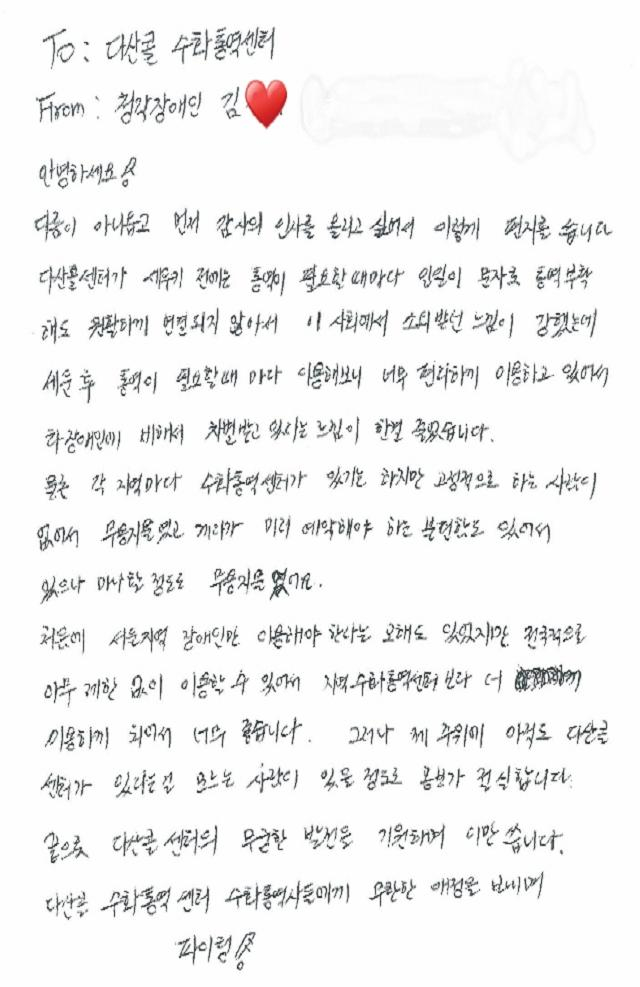 To : 다산콜 수화통역센터
From : 청각장애인 김
안녕하세요!
다름이 아니옵고 먼저 감사의 인사를 올리고 싶어서 이렇게 편지를 씁니다
다산콜센터가 세우기 전에는 통역이 필요할때마다 일일이 문자로 통역부탁
해도 원활하게 연결되지 않아서 이 사회에서 소외받던 느낌이 강했는데
세운 후 통역이 필요할때 마다 이용해보니 너무 편리하게 이용하고 있어서
타장애인에 비해서 차별받고 있다는 느낌이 한결 줄었습니다.
물론 각 지역마다 수화통역센터가 있기는 하지만 고정적으로 하는 사람이
없어서 무용지물였고 게다가 미리 예약해야 하는 불편함도 있어서
있으나 마나할 정도로 무용지물였어요.
처음에 서울지역 장애인만 이용해야 한다는 오해도 있었지만 전국적으로
아무 제한 없이 이용할 수 있어서 지역수화통역센터보다 더
이용하게 되어서 너무 좋습니다. 그러나 제 주위에 아직도 다산콜
센터가 있다는걸 모르는 사람이 있을 정도로 홍보가 절실합니다.
끝으로 다산콜 센터의 무궁한 발전을 기원하며 이만 씁니다.
다산콜 수화통역 센터 수화통역사들에게 무한한 애정을 보내며
파이팅!